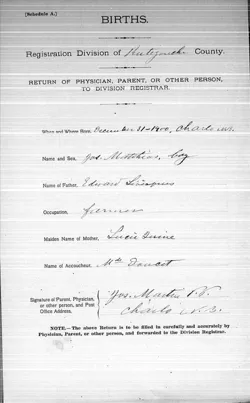 [Schedule A.]
BIRTHS.
Registration Division of Restigouche County.
RETURN OF PHYSICIAN, PARENT, OR OTHER PERSON,
TO DIVISION REGISTRAR.
When and Where Born, December 31-1900, Charlo
Name and Sex, Jos. Matthias, boy
Name of Father, Edward
Occupation, farmer
Maiden Name of Mother, Lucie
Name of Accoucheur, Doucet
Signature of Parent, Physician,
or other person, and Post
Office Address,
Jos. Martin
Charlo N.B.
NOTE.—The above Return is to be filled in carefully and accurately by
Physician, Parent, or other person, and forwarded to the Division Registrar.